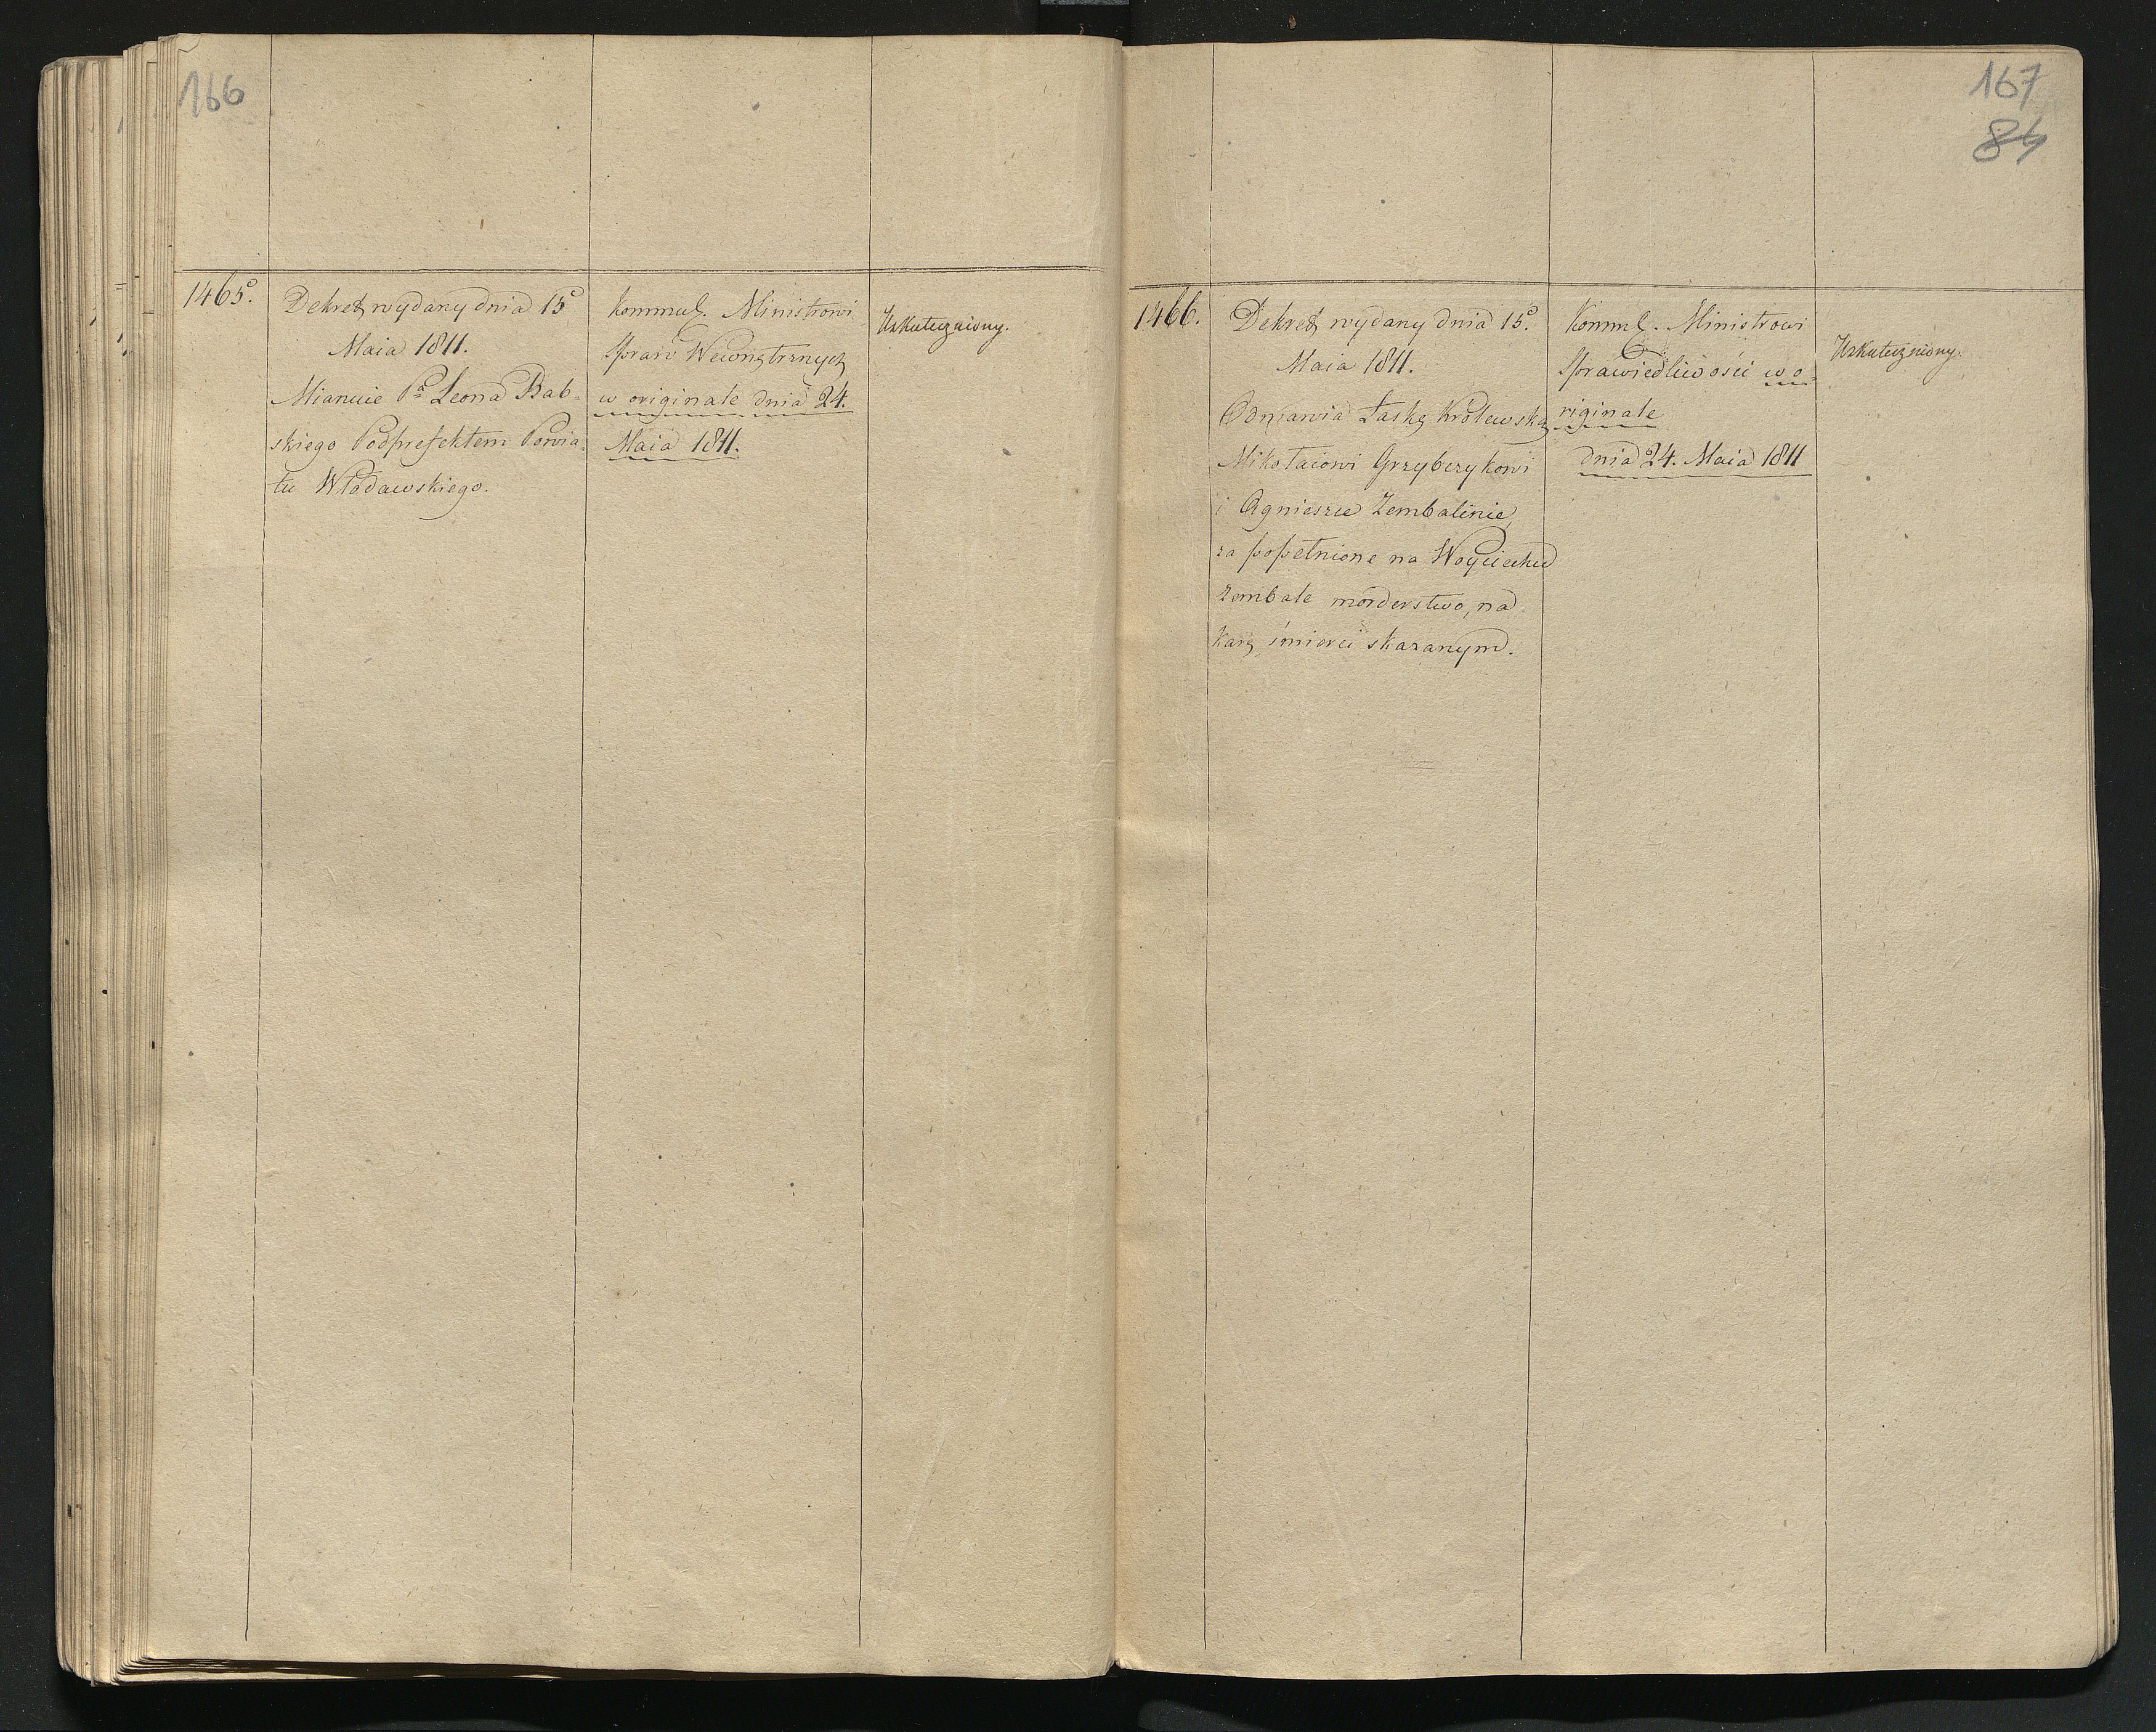 166
1465.
Dekret wydany dnia 15
Maia 1811.
Mianuie Pa Leona Bab-
skiego Podprefektem Powia-
tu Włodawskiego.
Kommuk. Ministrowi
Spraw Wewnętrznych
w originale dnia 24.
Maia 1811.
Uskuteczniony.
167
84
1466.
Dekret wydany dnia 15.
Maia 1811.
Odmawia Łaskę Królewską
Mikołaiowi Grzybczykowi
i Agnieszce Zembalinie,
za popełnione na Woyciechu
Zembale morderstwo, na
karę śmierci skazanym.
Kommuk. Ministrowi
Sprawiedliwości w o-
riginale
dnia 24. Maia 1811
Uskuteczniony.